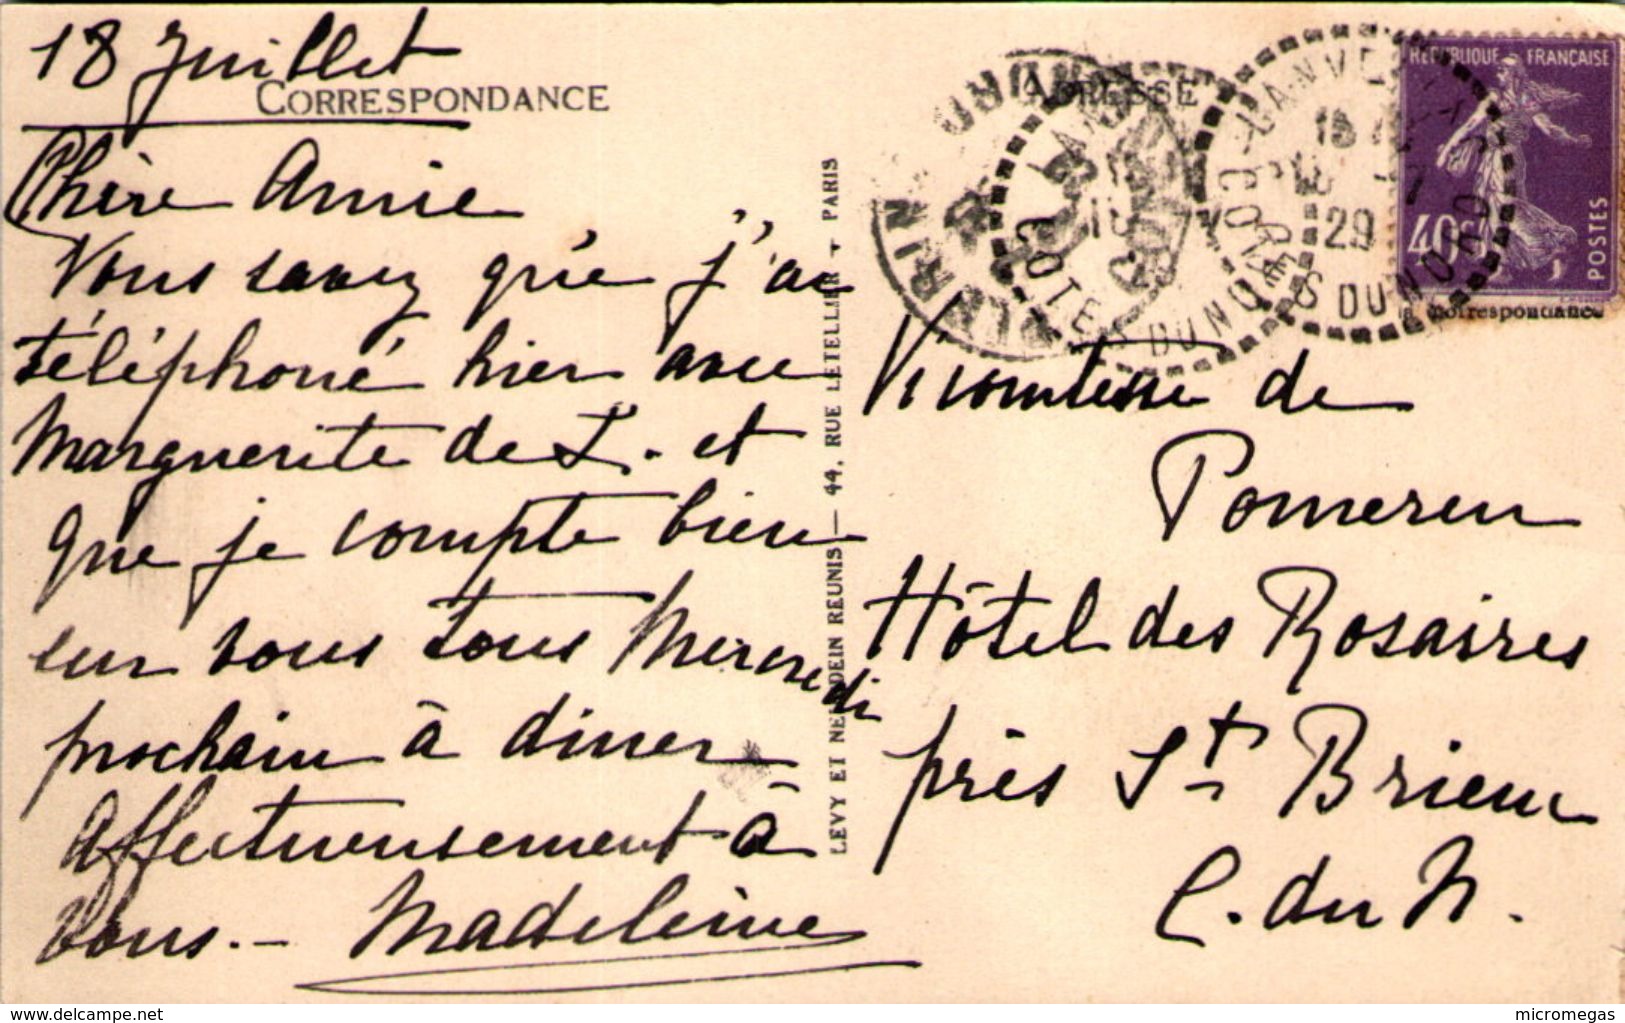 18 Juillet
CORRESPONDANCE
Chère Annie
Vous savez que j'ai
téléphoné hier avec
Marguerite de L. et
que je compte bien
sur vous tous Mercredi
prochain à diner
Affectueusement à
vous. - Madeleine
LEVY ET NEURDEIN REUNIS — 44, RUE LETELLIER - PARIS
ADRESSE
REPUBLIQUE FRANÇAISE
40c
POSTES
LANVOLLON
29
COTES DU NORD
COTES DU NORD
la correspondance
Vicomtesse de
Pomereu
Hôtel des Rosaires
près St Brieuc
C. du N.
www.delcampe.net
micromegas